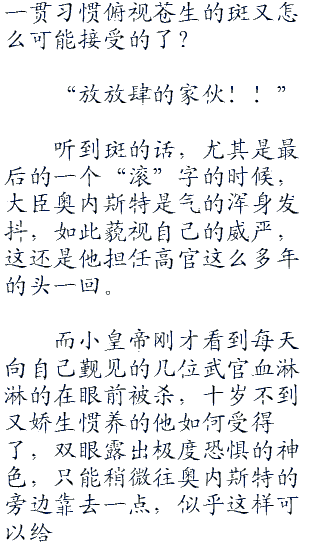 一贯习惯俯视苍生的斑又怎
么可能接受的了？
“放放肆的家伙！！”
听到斑的话，尤其是最
后的一个“滚”字的时候，
大臣奥内斯特是气的浑身发
抖，如此藐视自己的威严，
这还是他担任高官这么多年
的头一回。
而小皇帝刚才看到每天
向自己觐见的几位武官血淋
淋的在眼前被杀，十岁不到
又娇生惯养的他如何受得
了，双眼露出极度恐惧的神
色，只能稍微往奥内斯特的
旁边靠去一点，似乎这样可
以给